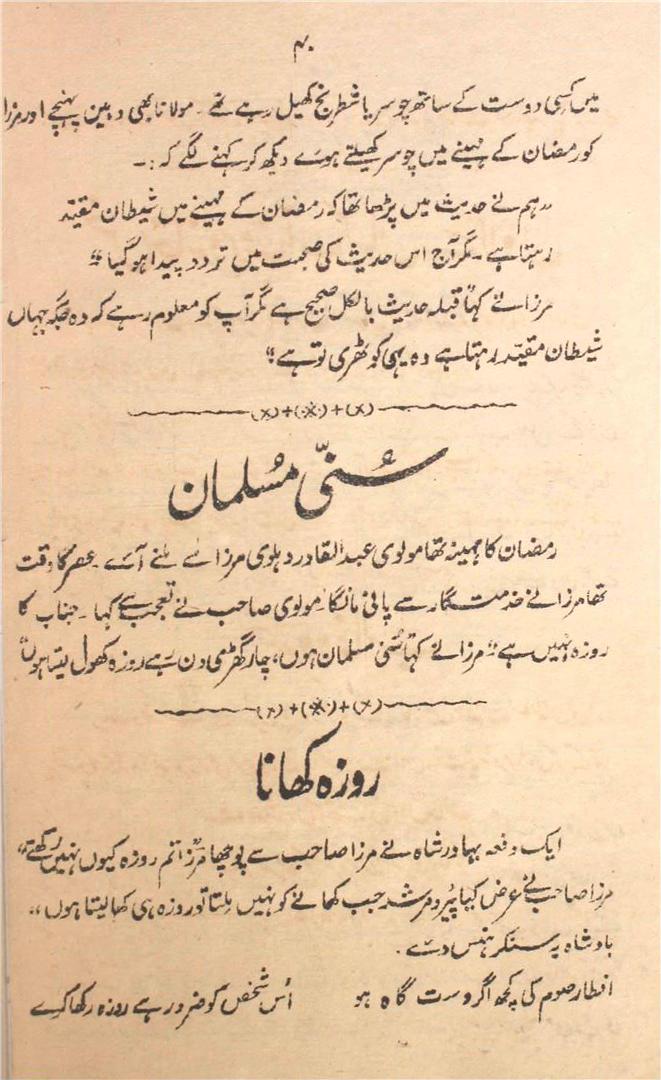 ۴۰
میں کسی دوست کے ساتھ چوسر یا شطرنج کھیل رہے تھے۔ مولانا بھی وہین پہنچے اور مرزا
کو رمضان کے مہینے میں چوسر کھیلتے ہوئے دیکھ کر کہنے لگے کہ :۔
”ہم نے حدیث میں پڑھا تھا کہ رمضان کے مہینے میں شیطان مقیّد
رہتا ہے۔ مگر آج اس حدیث کی صحت میں تردد پیدا ہو گیا“
مرزا نے کہا ”قبلہ حدیث بالکل صحیح ہے مگر آپ کو معلوم رہے کہ وہ جگہ جہاں
شیطان مقیّد رہتا ہے وہ یہی کوٹھری تو ہے“
(×)+(※)+(×)
سُنّی مسلمان
رمضان کا مہینہ تھا مولوی عبدالقادر دہلوی مرزا سے ملنے آئے۔ عصر کا وقت
تھا مرزا نے خدمتگار سے پانی مانگا۔ مولوی صاحب نے تعجب سے کہا۔ جناب کا
روزہ نہیں ہے“ مرزا نے کہا ”سُنی مسلمان ہوں، چار گھڑی دن رہے روزہ کھول لیتا ہوں“
(×)+(※)+(×)
روزہ کھانا
ایک دفعہ بہادر شاہ نے مرزا صاحب سے پوچھا ”مرزا تم روزہ کیوں نہیں رکھتے“
مرزا صاحب نے عرض کیا ”پیر و مرشد جب کھانے کو نہیں ملتا تو روزہ ہی کھا لیتا ہوں“
بادشاہ یہ سنکر ہنس دئے۔
افطار صوم کی کچھ اگر دست گاہ ہو اُس شخص کو ضرور ہے روزہ رکھا کرے